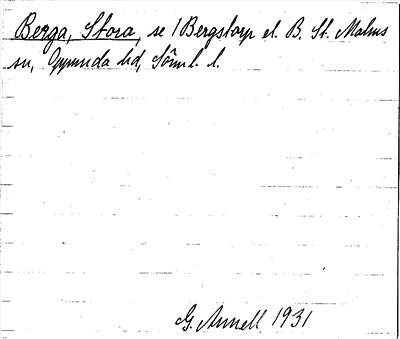 Berga, Stora, se 1 Bergstorp el. B. St. Malms
sn, Oppunda hd, Söml. l.
G. Annell 1931